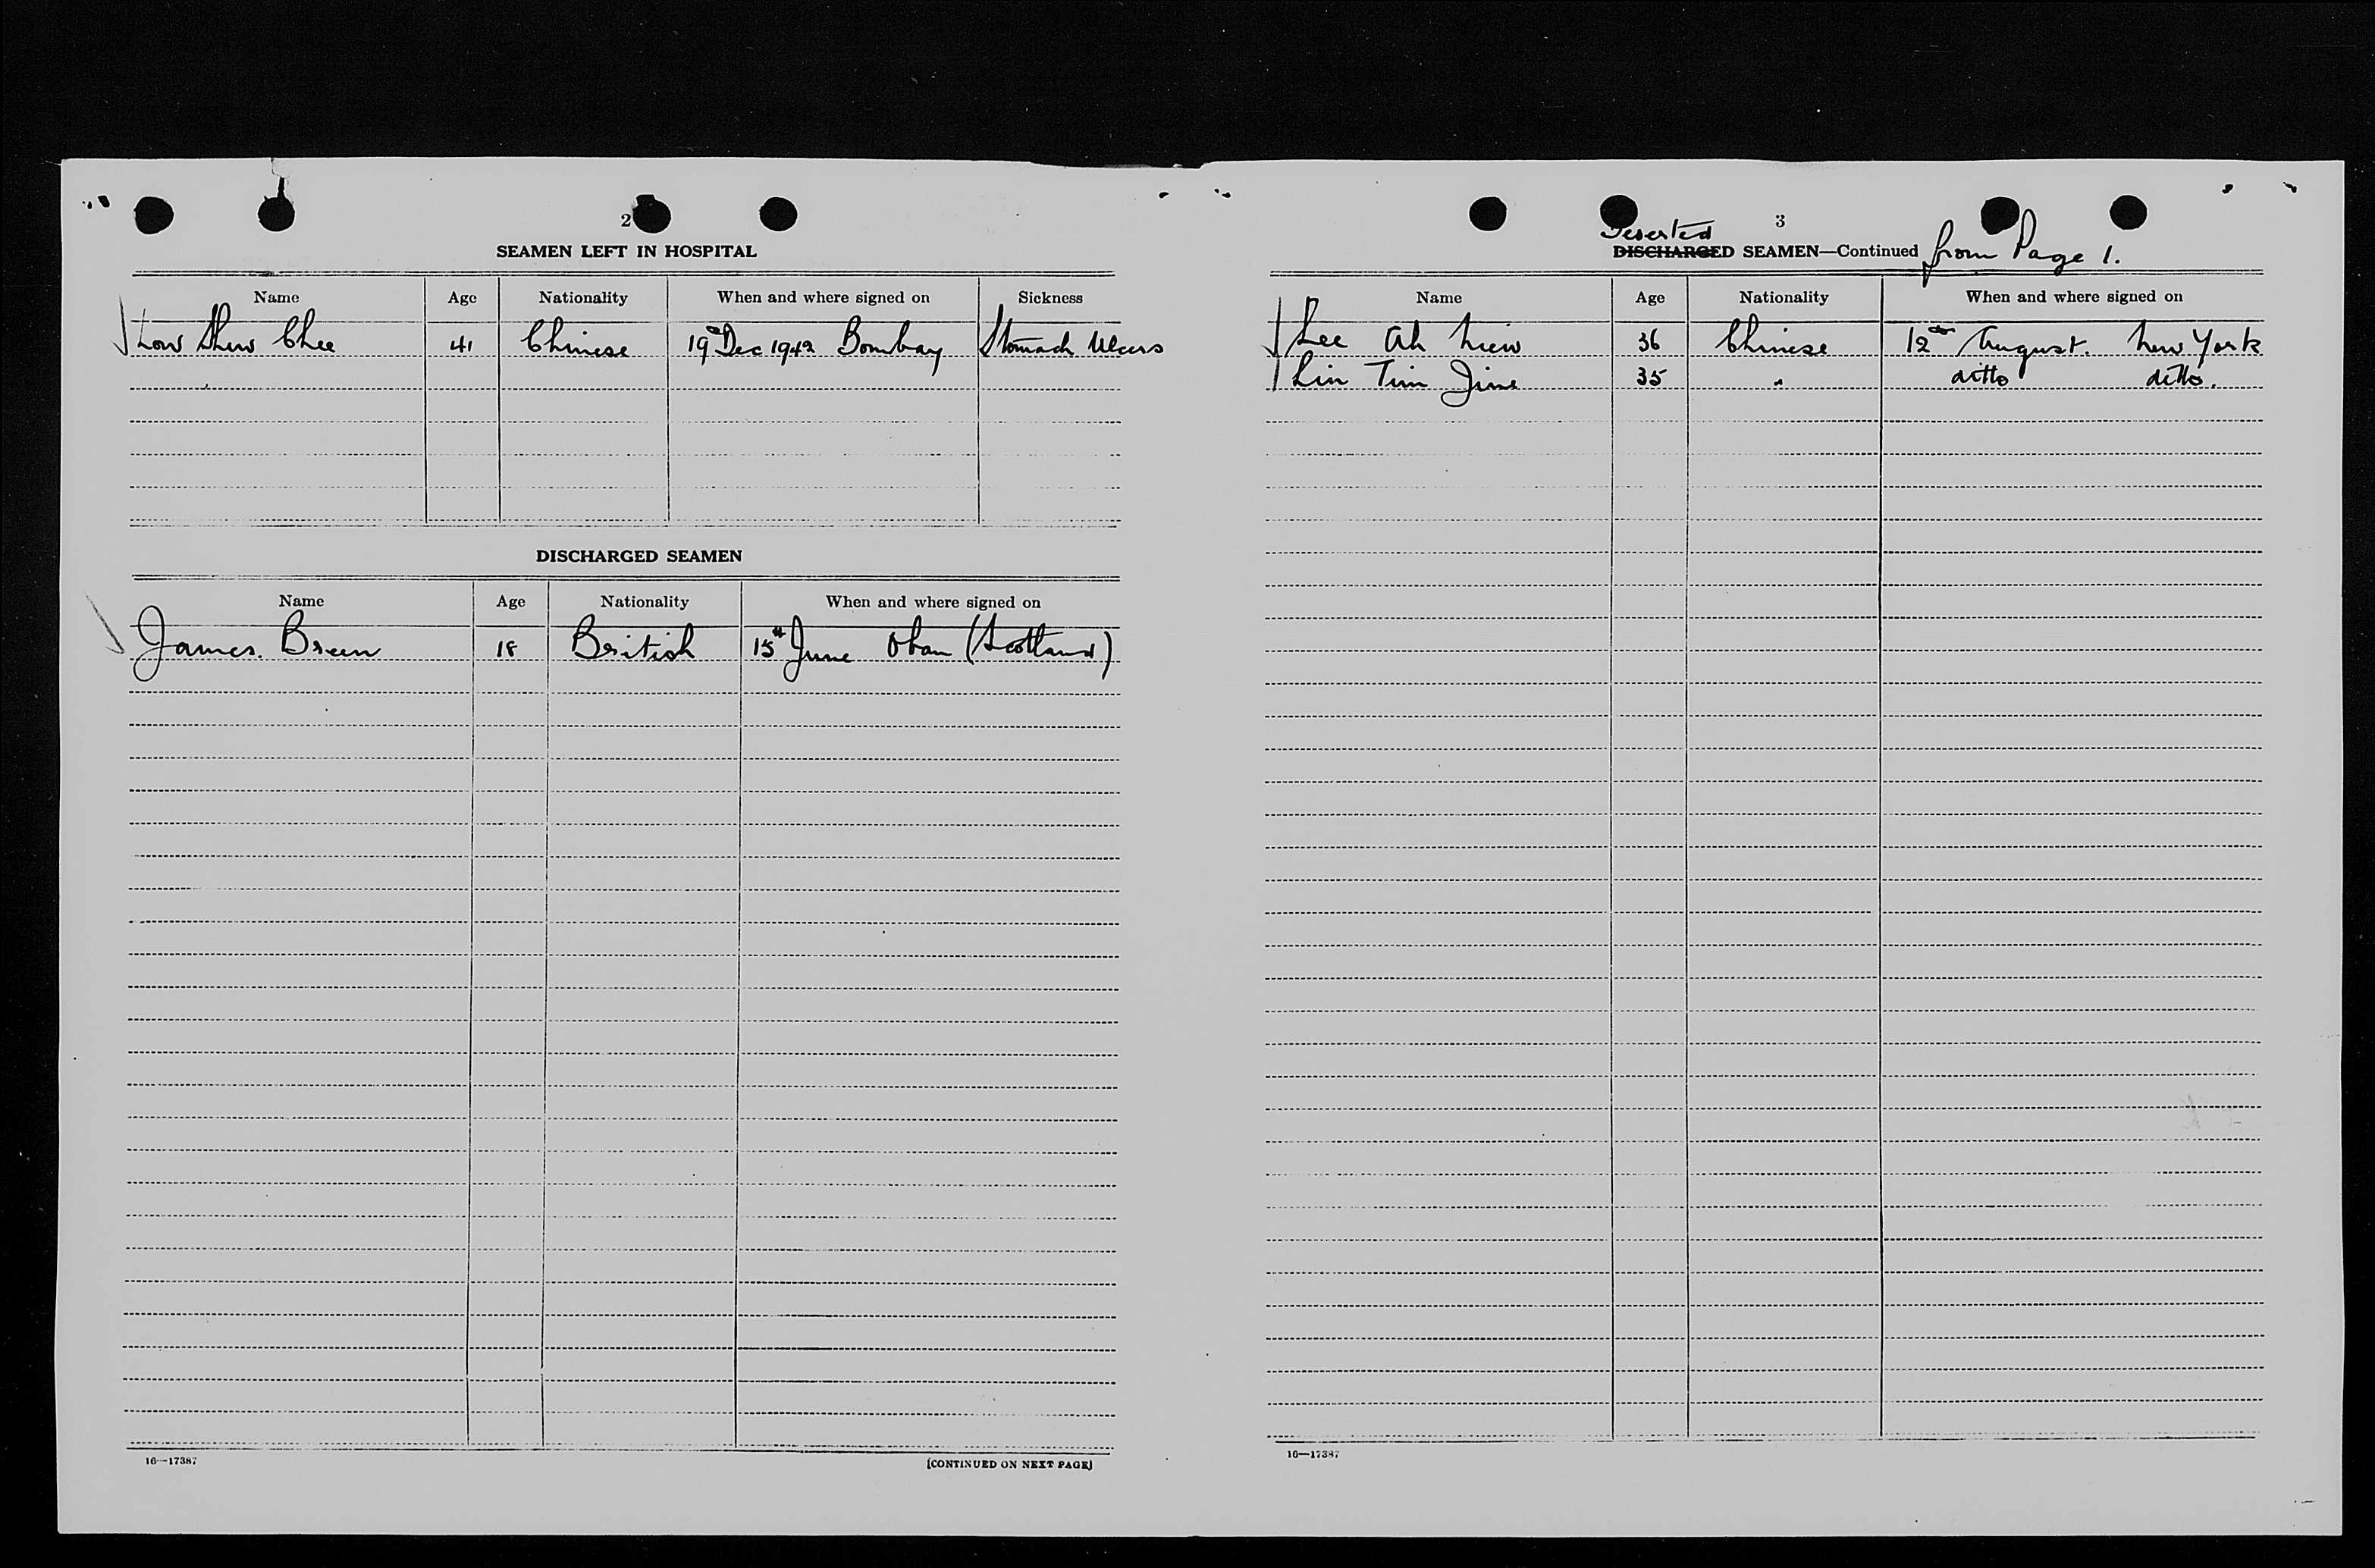 2
SEAMEN LEFT IN HOSPITAL
Name Age Nationality When and where signed on Sickness
Low Shew Chee 41 Chinese 19th Dec 1942 Bombay Stomach Ulcers
DISCHARGED SEAMEN
Name Age Nationality When and where signed on
James. Breen 18 British 15th June Oban (Scotland)
16—17387
[CONTINUED ON NEXT PAGE]
3
Deserted
DISCHARGED SEAMEN—Continued from Page 1.
Name Age Nationality When and where signed on
Lee Ah 36 Chinese 12th August. New York
Lin Tim Jine 35 " ditto ditto.
16—17387